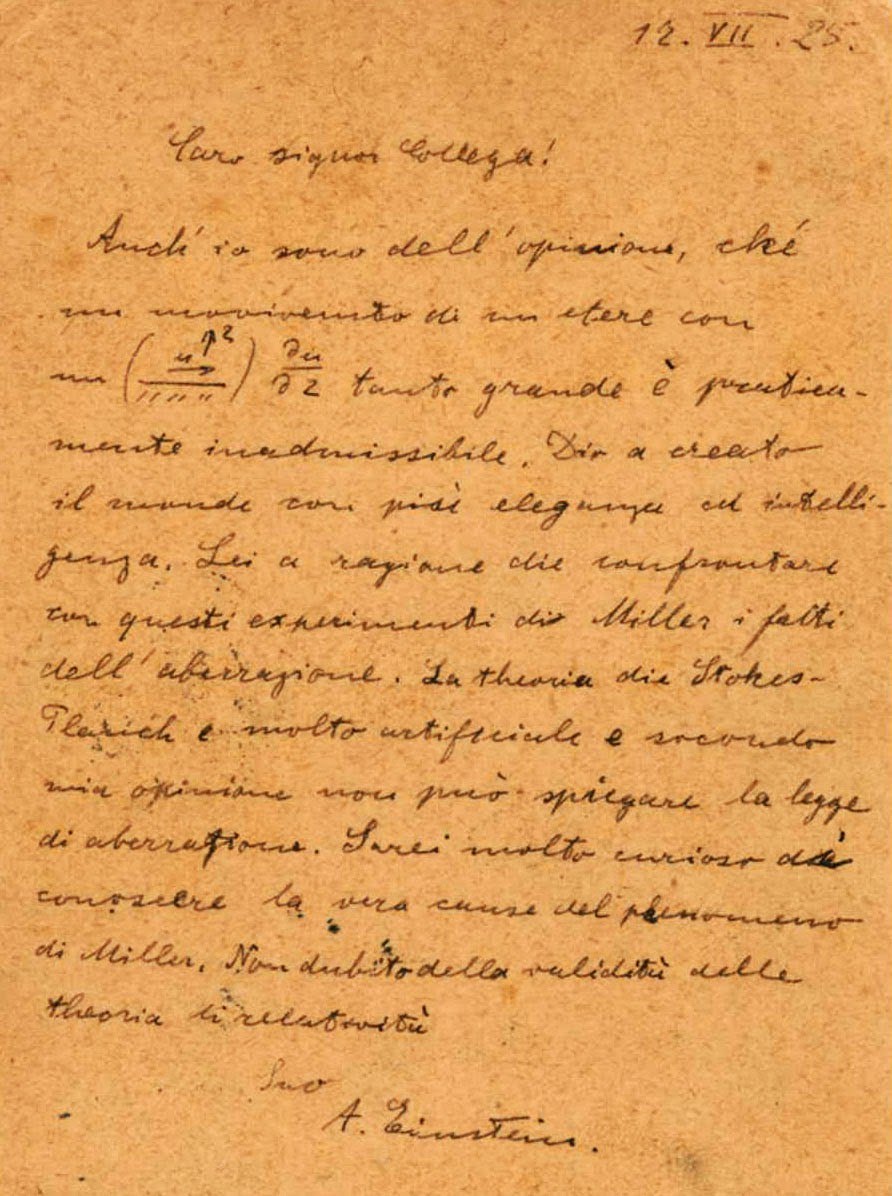 12. VII. 25.
Caro signor Collega!
Anch' io sono dell' opinione, ché
un movivemto di un etere con
un ( u ↑z / """" ) ∂u/∂z tanto grande è pratica-
mente inadmissibile. Dio a creato
il monde con più eleganza ed intelli-
genza. Lei a ragione die confrontare
con questi experimenti di Miller i fatti
dell' aberrazione. La theoria die Stokes-
Planck e molto artificiale e secondo
mia opinione non può spiegare la legge
di aberrazione. Sarei molto curioso di
conoscere la vera cause del phenomeno
di Miller. Non dubito della validitù delle
theoria di relativitù
Suo
A. Einstein.